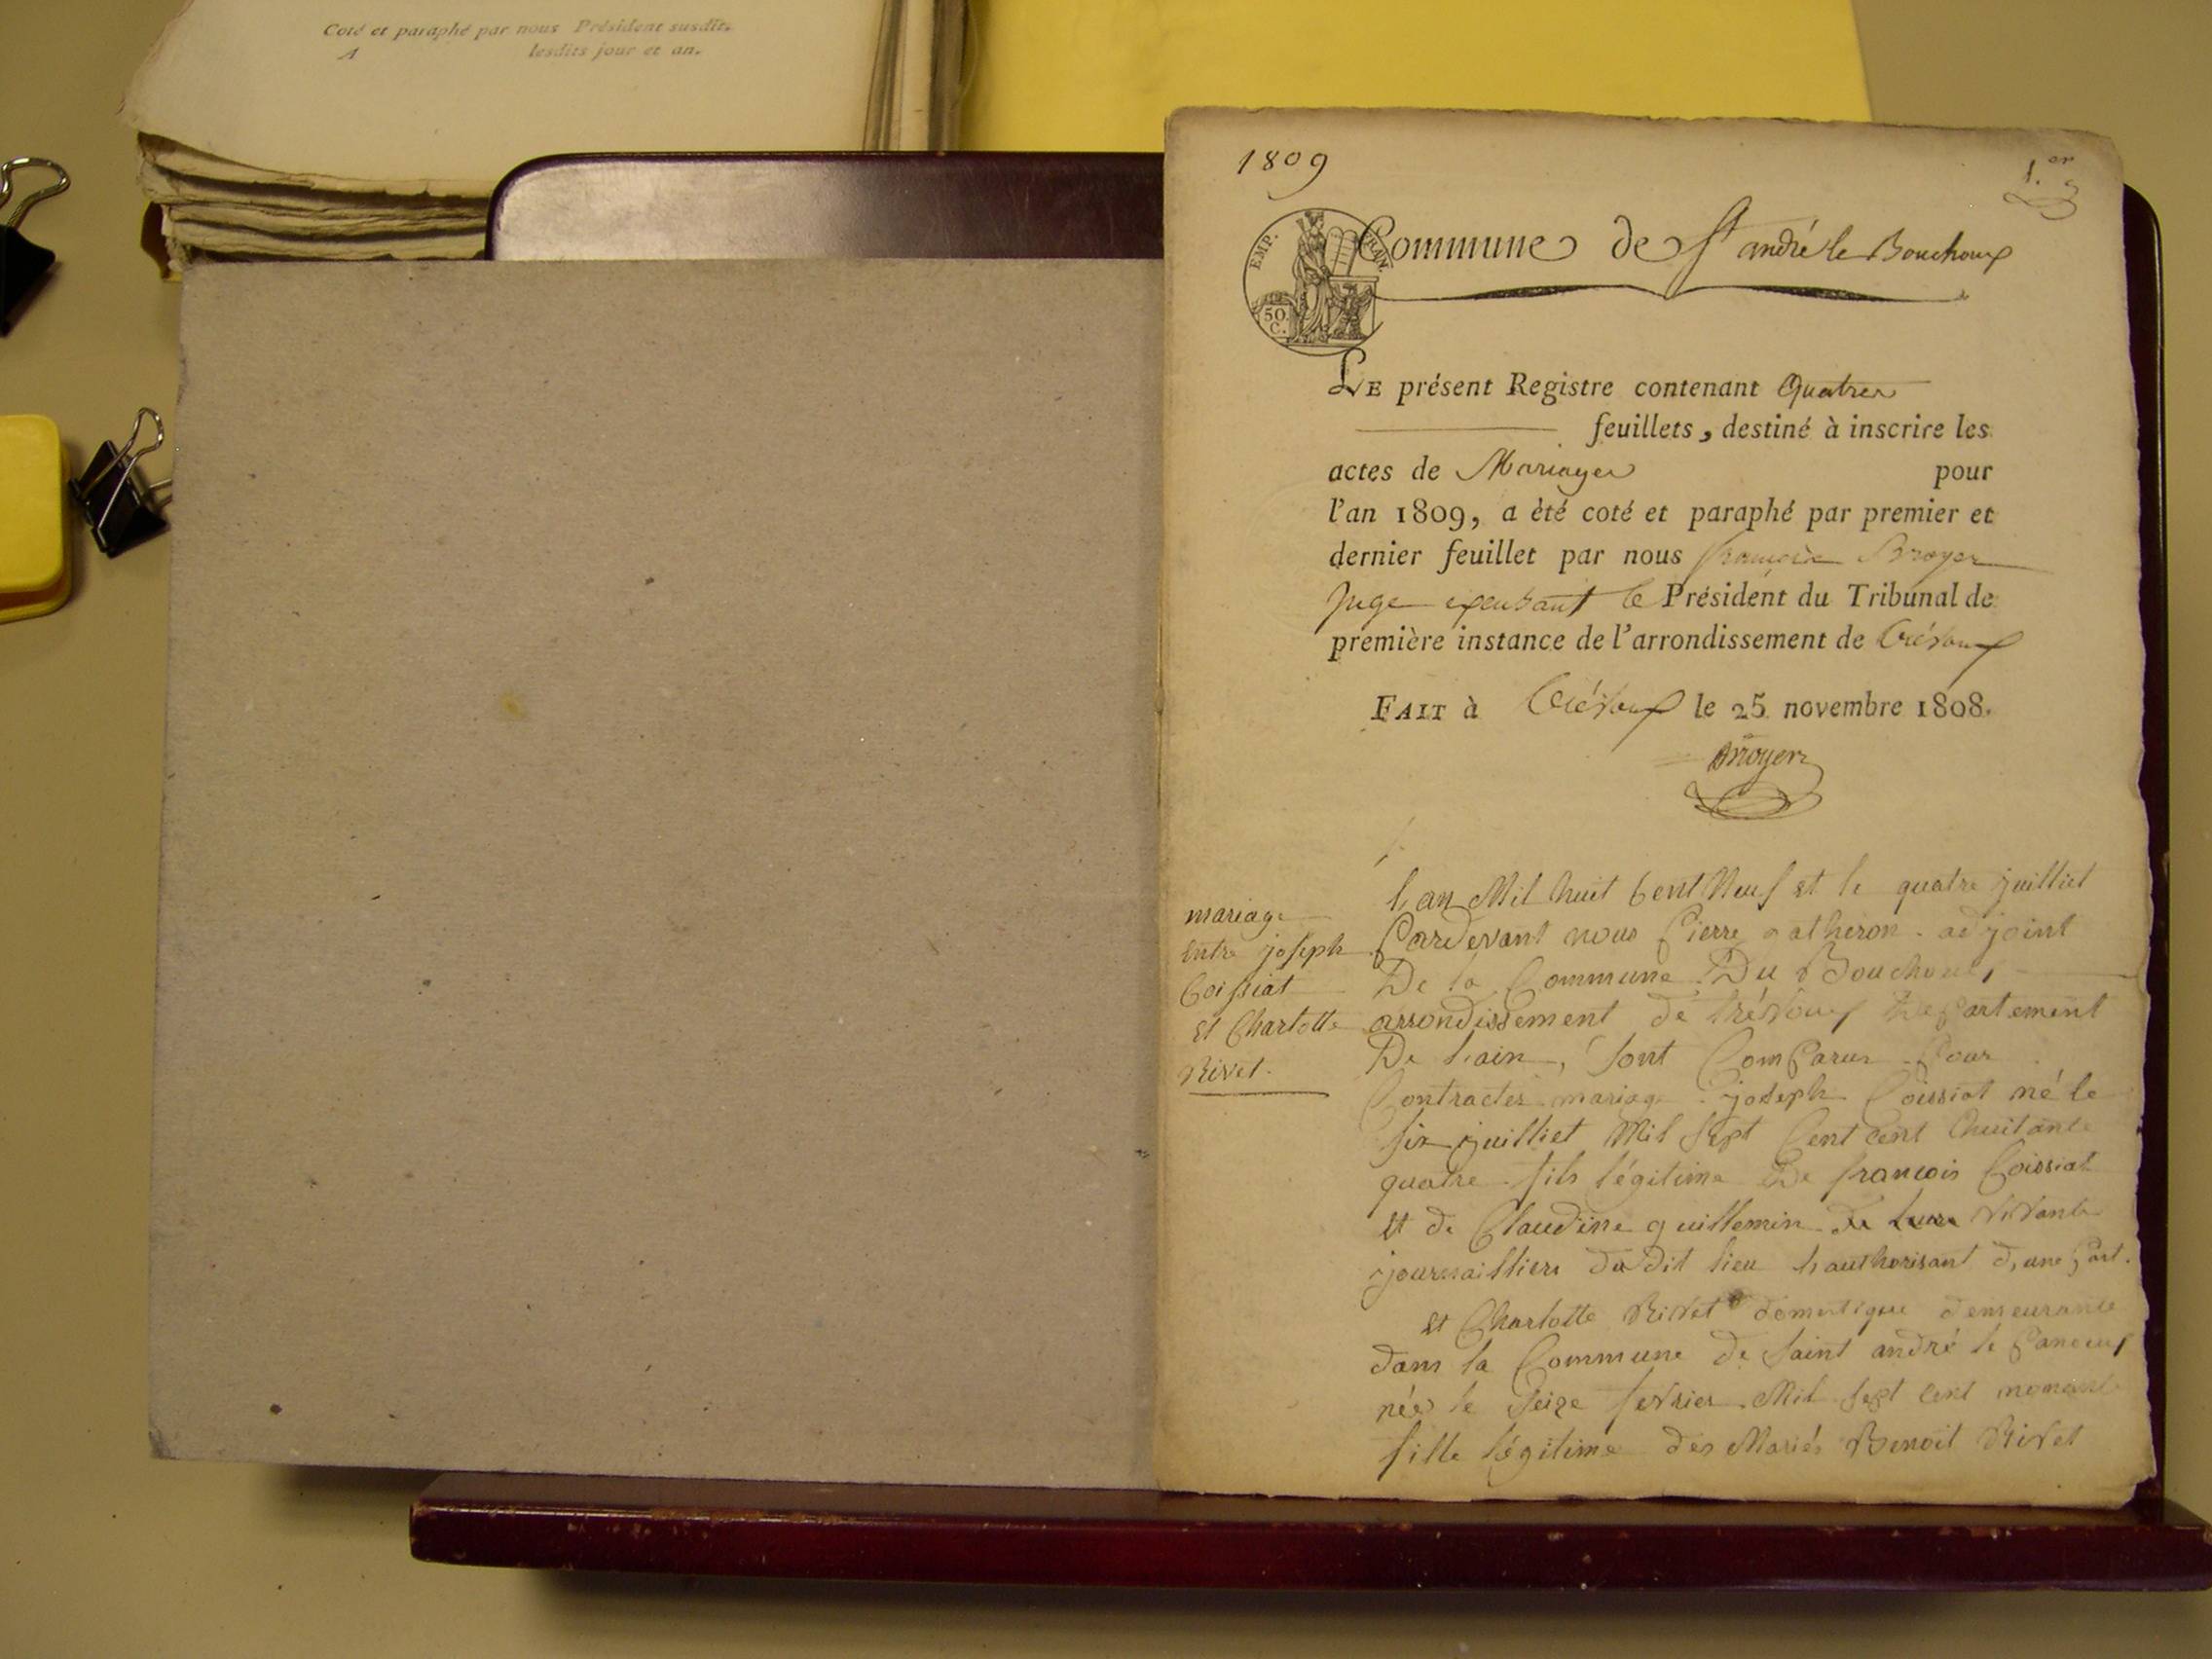 Coté et paraphé par nous Président susdit.
A lesdits jour et an.
1809
1.er
EMP. FRAN.
50
C.
Commune de St andré le Bouchoux
LE présent Registre contenant Quatre
feuillets, destiné à inscrire les
actes de Mariages pour
l'an 1809, a été coté et paraphé par premier et
dernier feuillet par nous françois Broyer
Juge le Président du Tribunal de
première instance de l'arrondissement de Trévoux
FAIT à Trévoux le 25 novembre 1808.
Broyer
mariage
entre joseph
Coissiat
et Charlotte
Rivet.
L'an Mil huit Cent Neuf et le quatre juilliet
Pardevant nous Pierre adjoint
De la Commune Du Bouchoux
arrondissement de trévoux Departement
De l'ain, sont Comparus Pour
Contracter mariage joseph Coissiat né le
six juilliet Mil sept Cent Cent huitante
quatre fils légitime De francois Coissiat
et de Claudine guillemin vivants
journailliers du dit lieu l'authorisant d'une Part.
et Charlotte Rivet domestique demeurante
dans la Commune De saint andré le Panoux
née le seize fevrier Mil sept cent nonante
fille légitime des Mariés Benoit Rivet